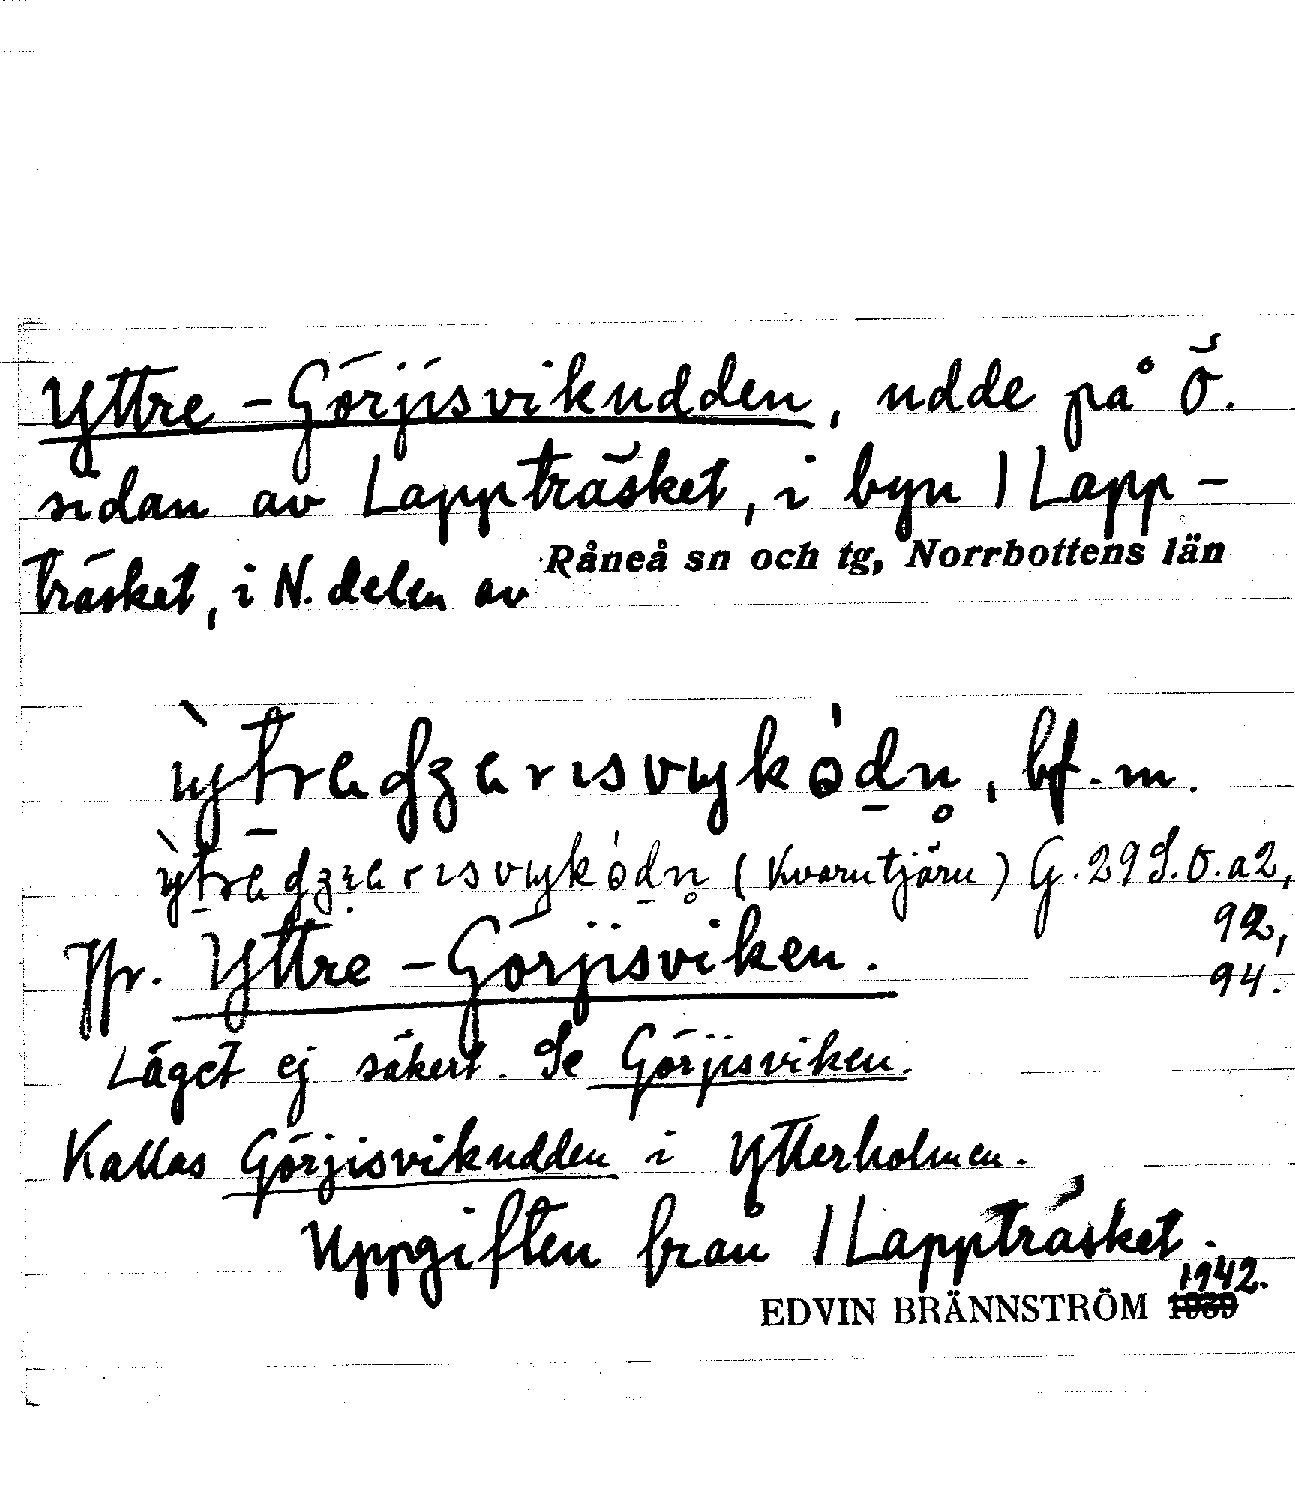 Yttre-Görjisvikudden, udde på Ö.
sidan av Lappträsket, i byn 1 Lapp-
träsket, i N. delen av Råneå sn och tg, Norrbottens län
bf. m.
(Kvarntjärn) G. 29 S. Ö. a2,
92,
94.
Jfr. Yttre-Görjisviken.
Läget ej säkert. Se Görjisviken.
Kallas Görjisvikudden i Ytterholmen.
Uppgiften från 1 Lappträsket.
1942.
EDVIN BRÄNNSTRÖM 1939